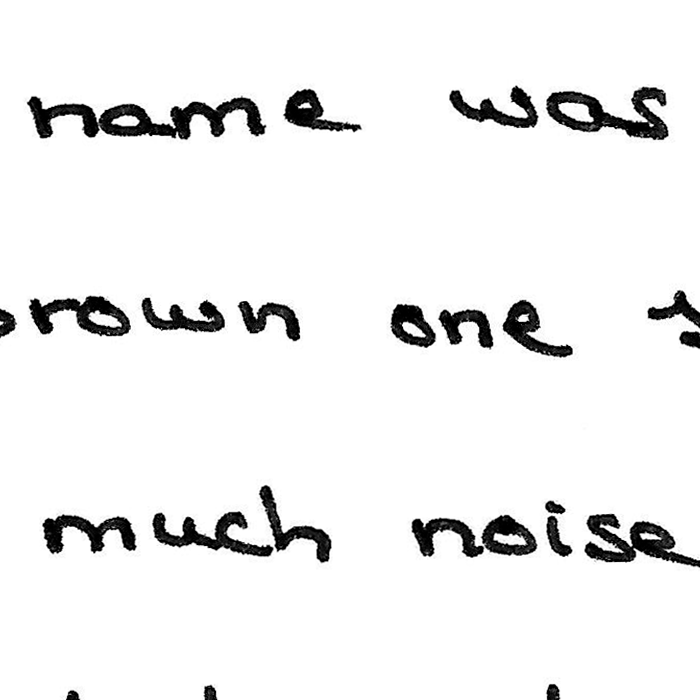 name was
brown one
much noise